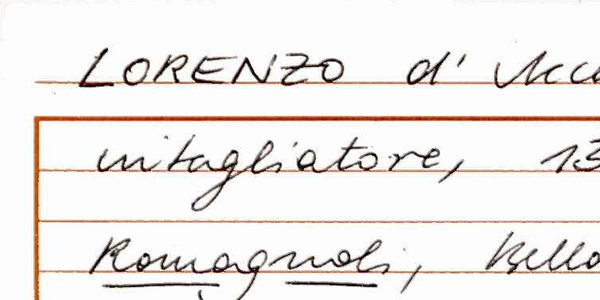 LORENZO d'
intagliatore, 13
Romagnoli, Bello